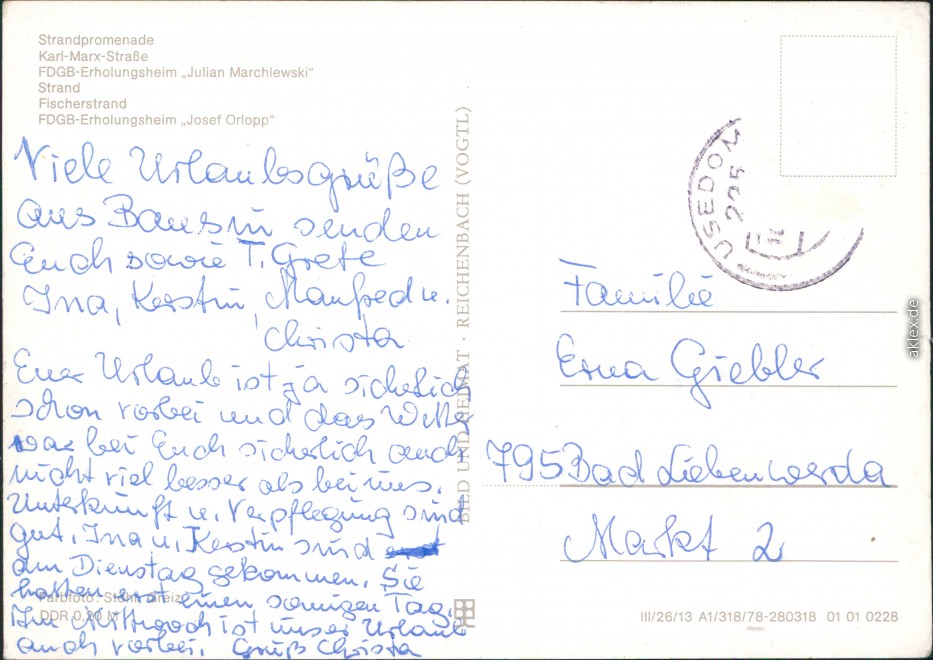 Strandpromenade
Karl-Marx-Straße
FDGB-Erholungsheim „Julian Marchlewski“
Strand
Fischerstrand
FDGB-Erholungsheim „Josef Orlopp“
Viele Urlaubsgrüße
aus Bansin senden
Euch sowie T. Grete
Ina, Kerstin, Manfred u.
Christa
Euer Urlaub ist ja sicherlich
schon vorbei und das Wetter
war bei Euch sicherlich auch
nicht viel besser als bei uns.
Unterkunft u. Verpflegung sind
gut. Ina u. Kerstin sind
am Dienstag gekommen. Sie
hatten erst einen sonnigen Tag.
Am Mittwoch ist unser Urlaub
auch vorbei. Gruß Christa
Farbfoto: Greiz
DDR 0,20 M
BILD UND HEIMAT · REICHENBACH (VOGTL)
USEDOM
225
Familie
Erna Giebler
795 Bad Liebenwerda
Markt 2
III/26/13 A1/318/78-280318 01 01 0228
aklex.de